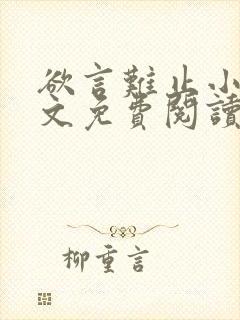 欲言難止小
文免費閱讀
柳重言